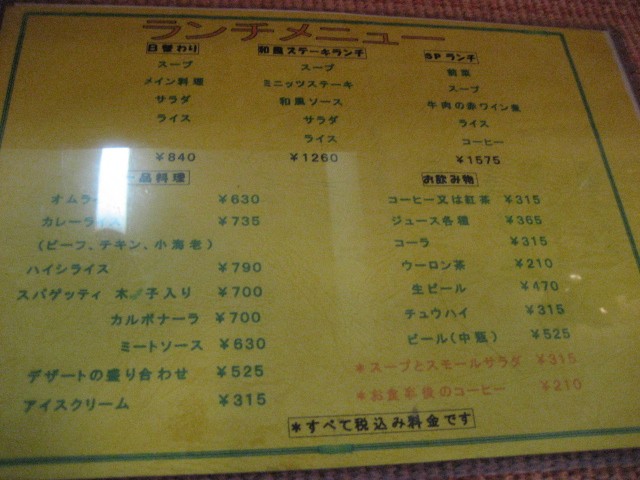 ランチメニュー
日替わり
スープ
メイン料理
サラダ
ライス
¥840
和風ステーキランチ
スープ
ミニッツステーキ
和風ソース
サラダ
ライス
¥1260
SPランチ
前菜
スープ
牛肉の赤ワイン煮
ライス
コーヒー
¥1575
一品料理
オムライス ¥630
カレーライス ¥735
(ビーフ、チキン、小海老)
ハイシライス ¥790
スパゲッティ 木ノ子入り ¥700
カルボナーラ ¥700
ミートソース ¥630
デザートの盛り合わせ ¥525
アイスクリーム ¥315
お飲み物
コーヒー又は紅茶 ¥315
ジュース各種 ¥365
コーラ ¥315
ウーロン茶 ¥210
生ビール ¥470
チュウハイ ¥315
ビール(中瓶) ¥525
*スープとスモールサラダ ¥315
*お食事後のコーヒー ¥210
*すべて税込み料金です